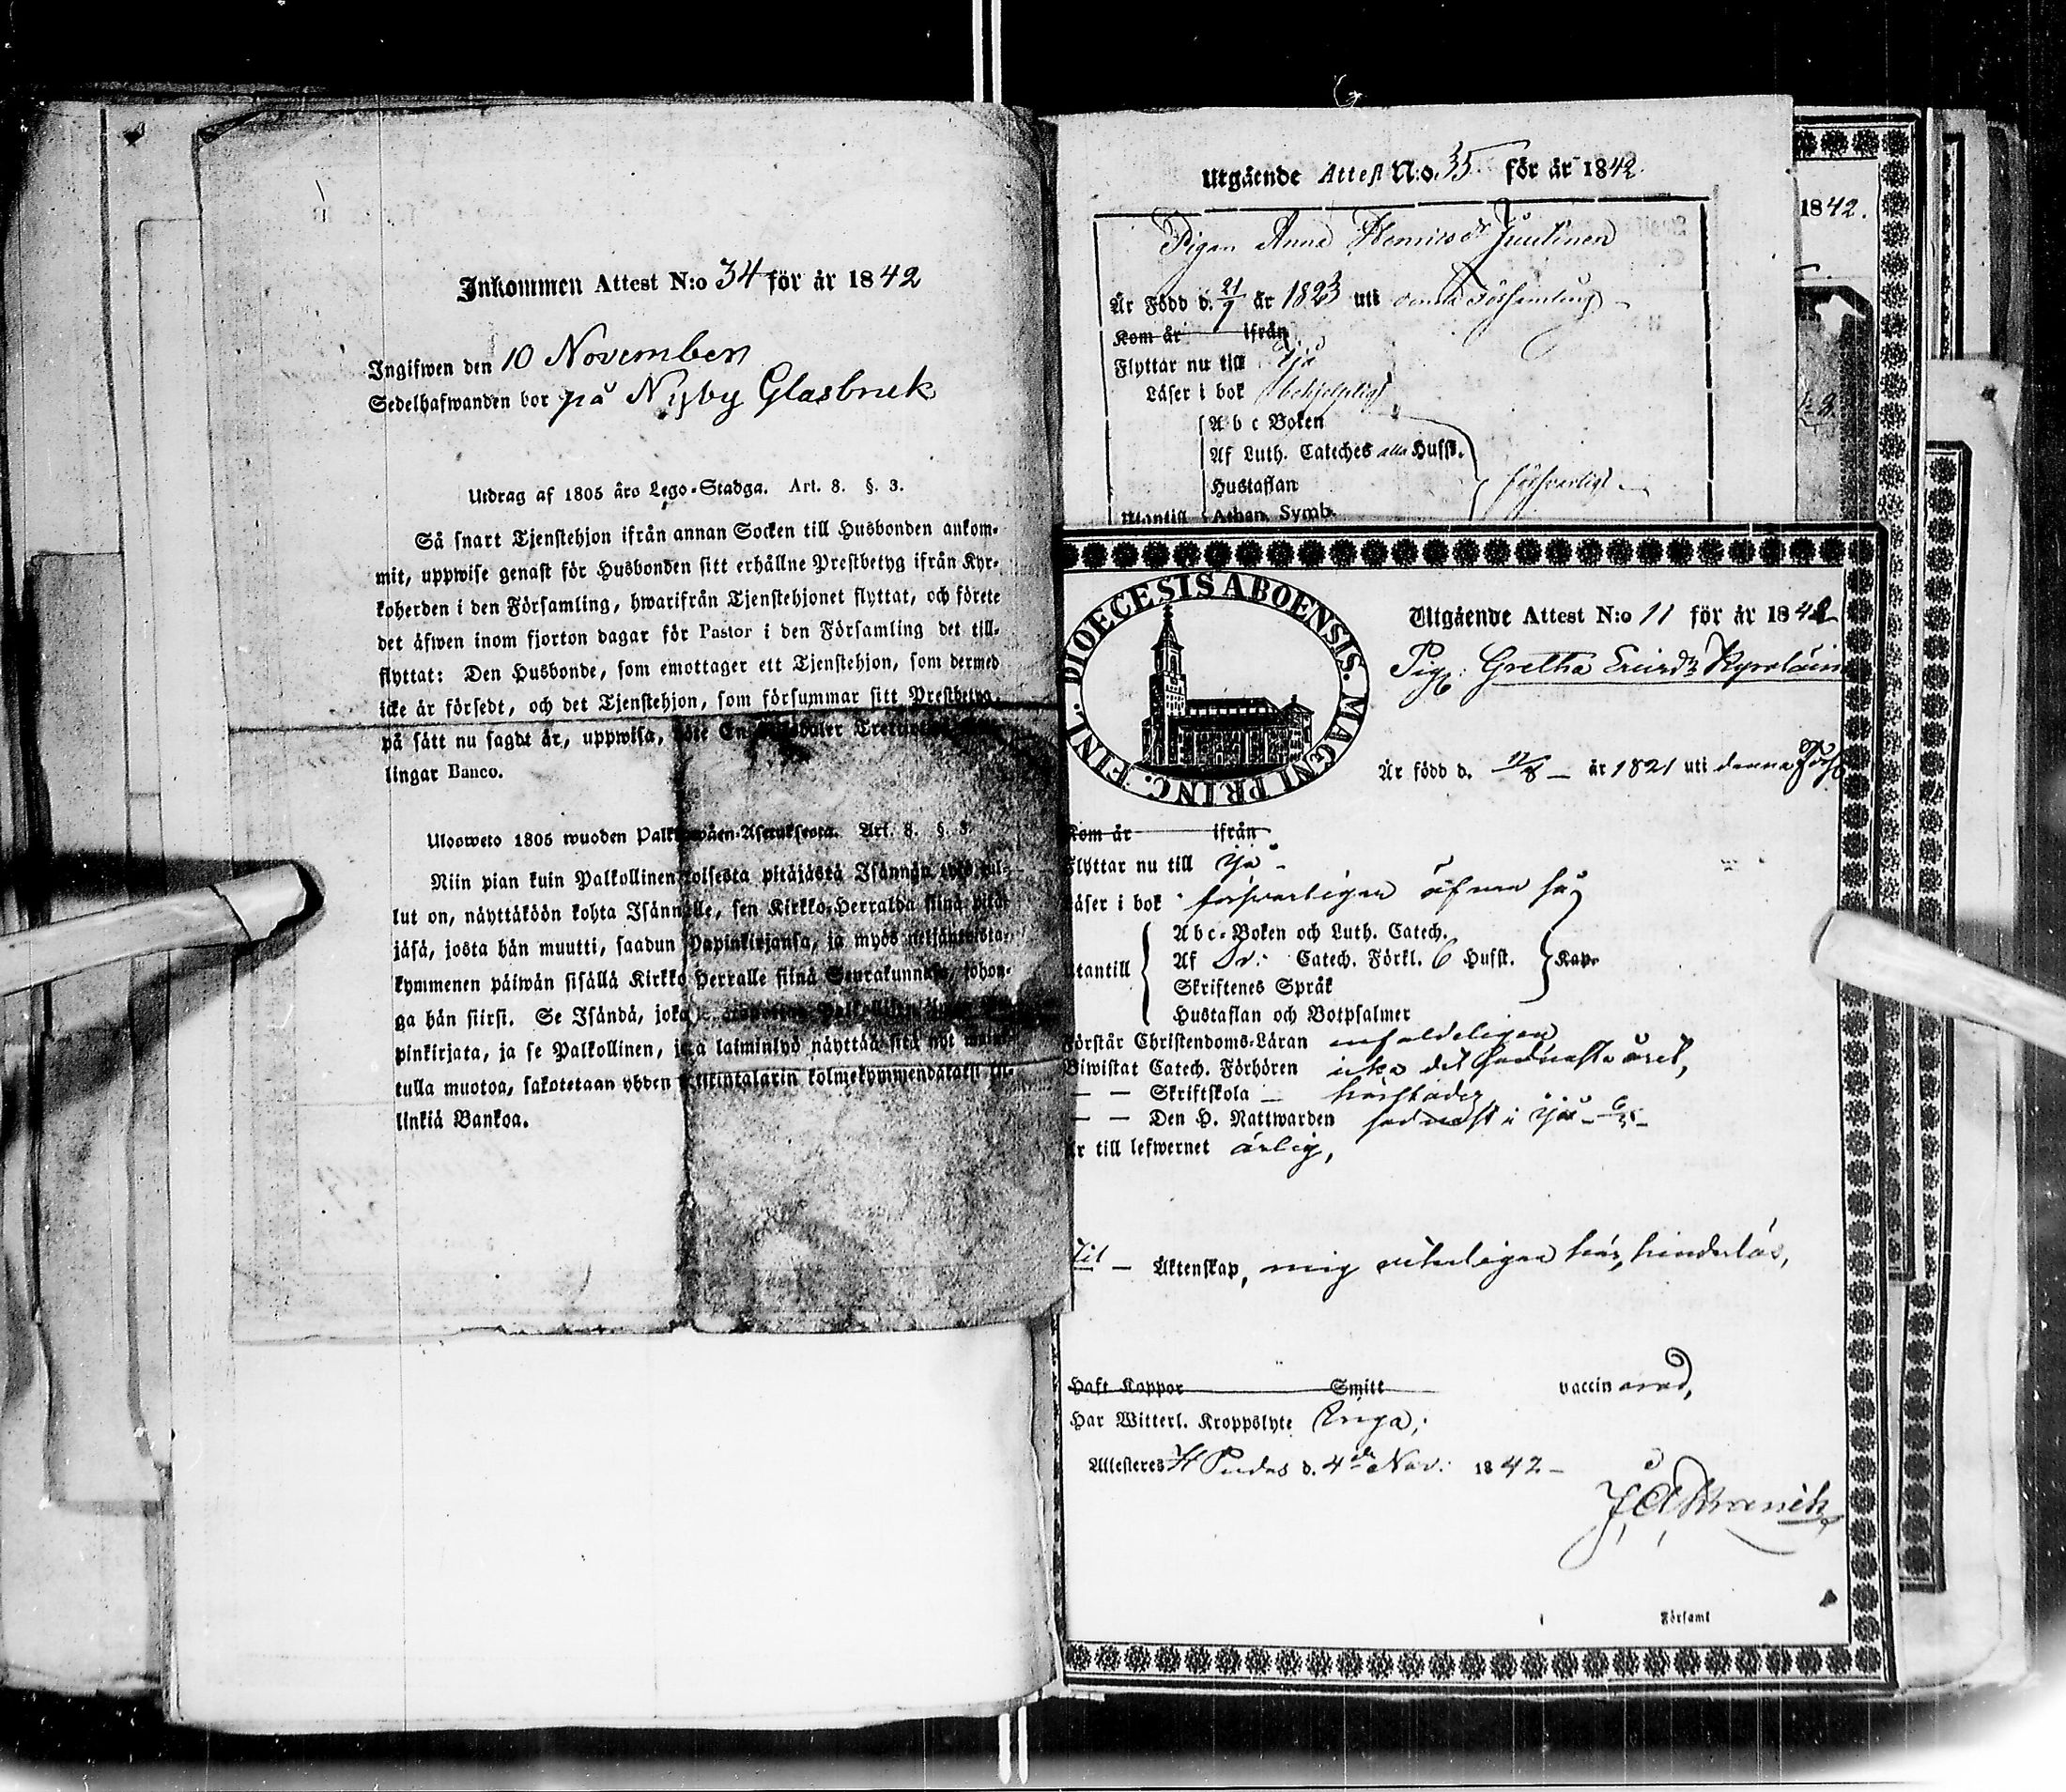 Inkommen Attest N:o 34 för år 1842
Ingifwen den 10 November
Sedelhafwanden bor på Nyby Glasbruk
Utdrag af 1805 års Lego-Stadga. Art. 8. §. 3.
Så snart Tjenstehjon ifrån annan Socken till Husbonden ankom-
mit, uppwise genast för Husbonden sitt erhållne Prestbetyg ifrån Kyr-
koherden i den Församling, hwarifrån Tjenstehjonet flyttat, och förete
det äfwen inom fjorton dagar för Pastor i den Församling det till-
flyttat: Den Husbonde, som emottager ett Tjenstehjon, som dermed
icke är försedt, och det Tjenstehjon, som försummar sitt Prestbetyg,
på sätt nu sagdt är, uppwisa, böte En
lingar Banco.
Ulosweto 1805 wuoden Palkollisen-Asetuksesta. Art. 8. §. 3.
Niin pian kuin Palkollinen toisesta pitäjästä Isännän
lut on, näyttäköön kohta Isännälle, sen Kirkko-Herralda siinä pitä-
jäsä, josta hän muutti, saadun Papinkirjansa, ja myös neljäntoista-
kymmenen päiwän sisällä Kirkko Herralle siinä Seurakunnasa, johon-
ga hän siirsi. Se Isändä, joka
pinkirjata, ja se Palkollinen, joka laiminlyö näyttää sitä nyt
tulla muotoa, sakotetaan yhden Riikintalarin kolmekymmendäkaksi
linkiä Bankoa.
Utgående Attest N:o. 35 för år 1842.
Pigan Anna Henricsdr Juutinen
Är Född d. 21/9 år 1823 uti denna Församling
Kom år ifrån
Flyttar nu till Ijå
Läser i bok behjelpligt
A b c Boken
Af Luth. Cateches alla Hufst.
Hustaflan försvarligt
Utantill Athan. Symb.
1842.
DIOECESIS ABOENSIS. MAGNI PRINC. FINL.
Utgående Attest N:o 11 för år 1842
Pig: Gretha
Är född d. år 1821 uti denna Förs
Kom år ifrån
Flyttar nu till Ijå
Läser i bok försvarligen äfven så
Abc-Boken och Luth. Catech.
Utantill Af Sv: Catech. Förkl. 6 Hufst. Kap.
Skriftenes Språk
Hustaflan och Botpsalmer
Förstår Christendoms-Läran enfaldeligen
Biwistat Catech. Förhören icke det sednaste året,
— — Skriftskola —
— — Den H. Nattwarden sednast i Ijå
Är till lefwernet ärlig,
Till — Äktenskap, mig veterligen här, hinderlös,
Haft Koppor Smitt vaccinerad,
Har Witterl. Kroppslyte Inga;
Attesteres H Pudas d. 4de Nov: 1842 —
Församl